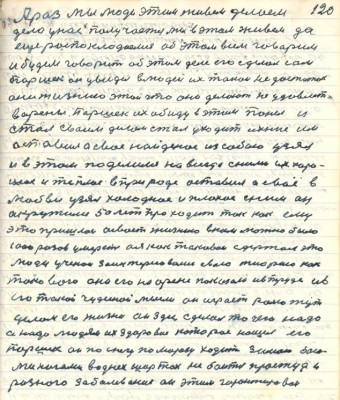 120
А раз мы люди этим живем делаем
дело у нас получается мы в этом живем да
еще расположения об этом всем говорим
и будем говорить об этом деле его сделал сам
Паршек он увидел в людей их такой недостаток
они жизнею этой это они делают не удовлет-
ворены Паршек их обиду в этим понял и
стал своим делом стал уходить
оставил а свое найденое из собою узял
и в этом поделился на всегда с ними их хоро-
шое и теплое в природе оставил а своё в
любви узял холодное и плохое с ним он
50 лет проходит так как ему
это пришлося жизнею в нем можно было
1000 разов умереть а он как таковой сдержал это
люди ученые заинтересовани его теорию как
такового оно его на арене показали и в труде и в
его такой чуденой мысли он играет роль тут
делает его жизни он здесь сделал то чего надо
а надо людям их здоровие которое нашел его
Паршек он по снегу по морозу ходит зимою бос-
ми ногами в одних шортах не боится простуд и
разного заболевания он этим гарантирован